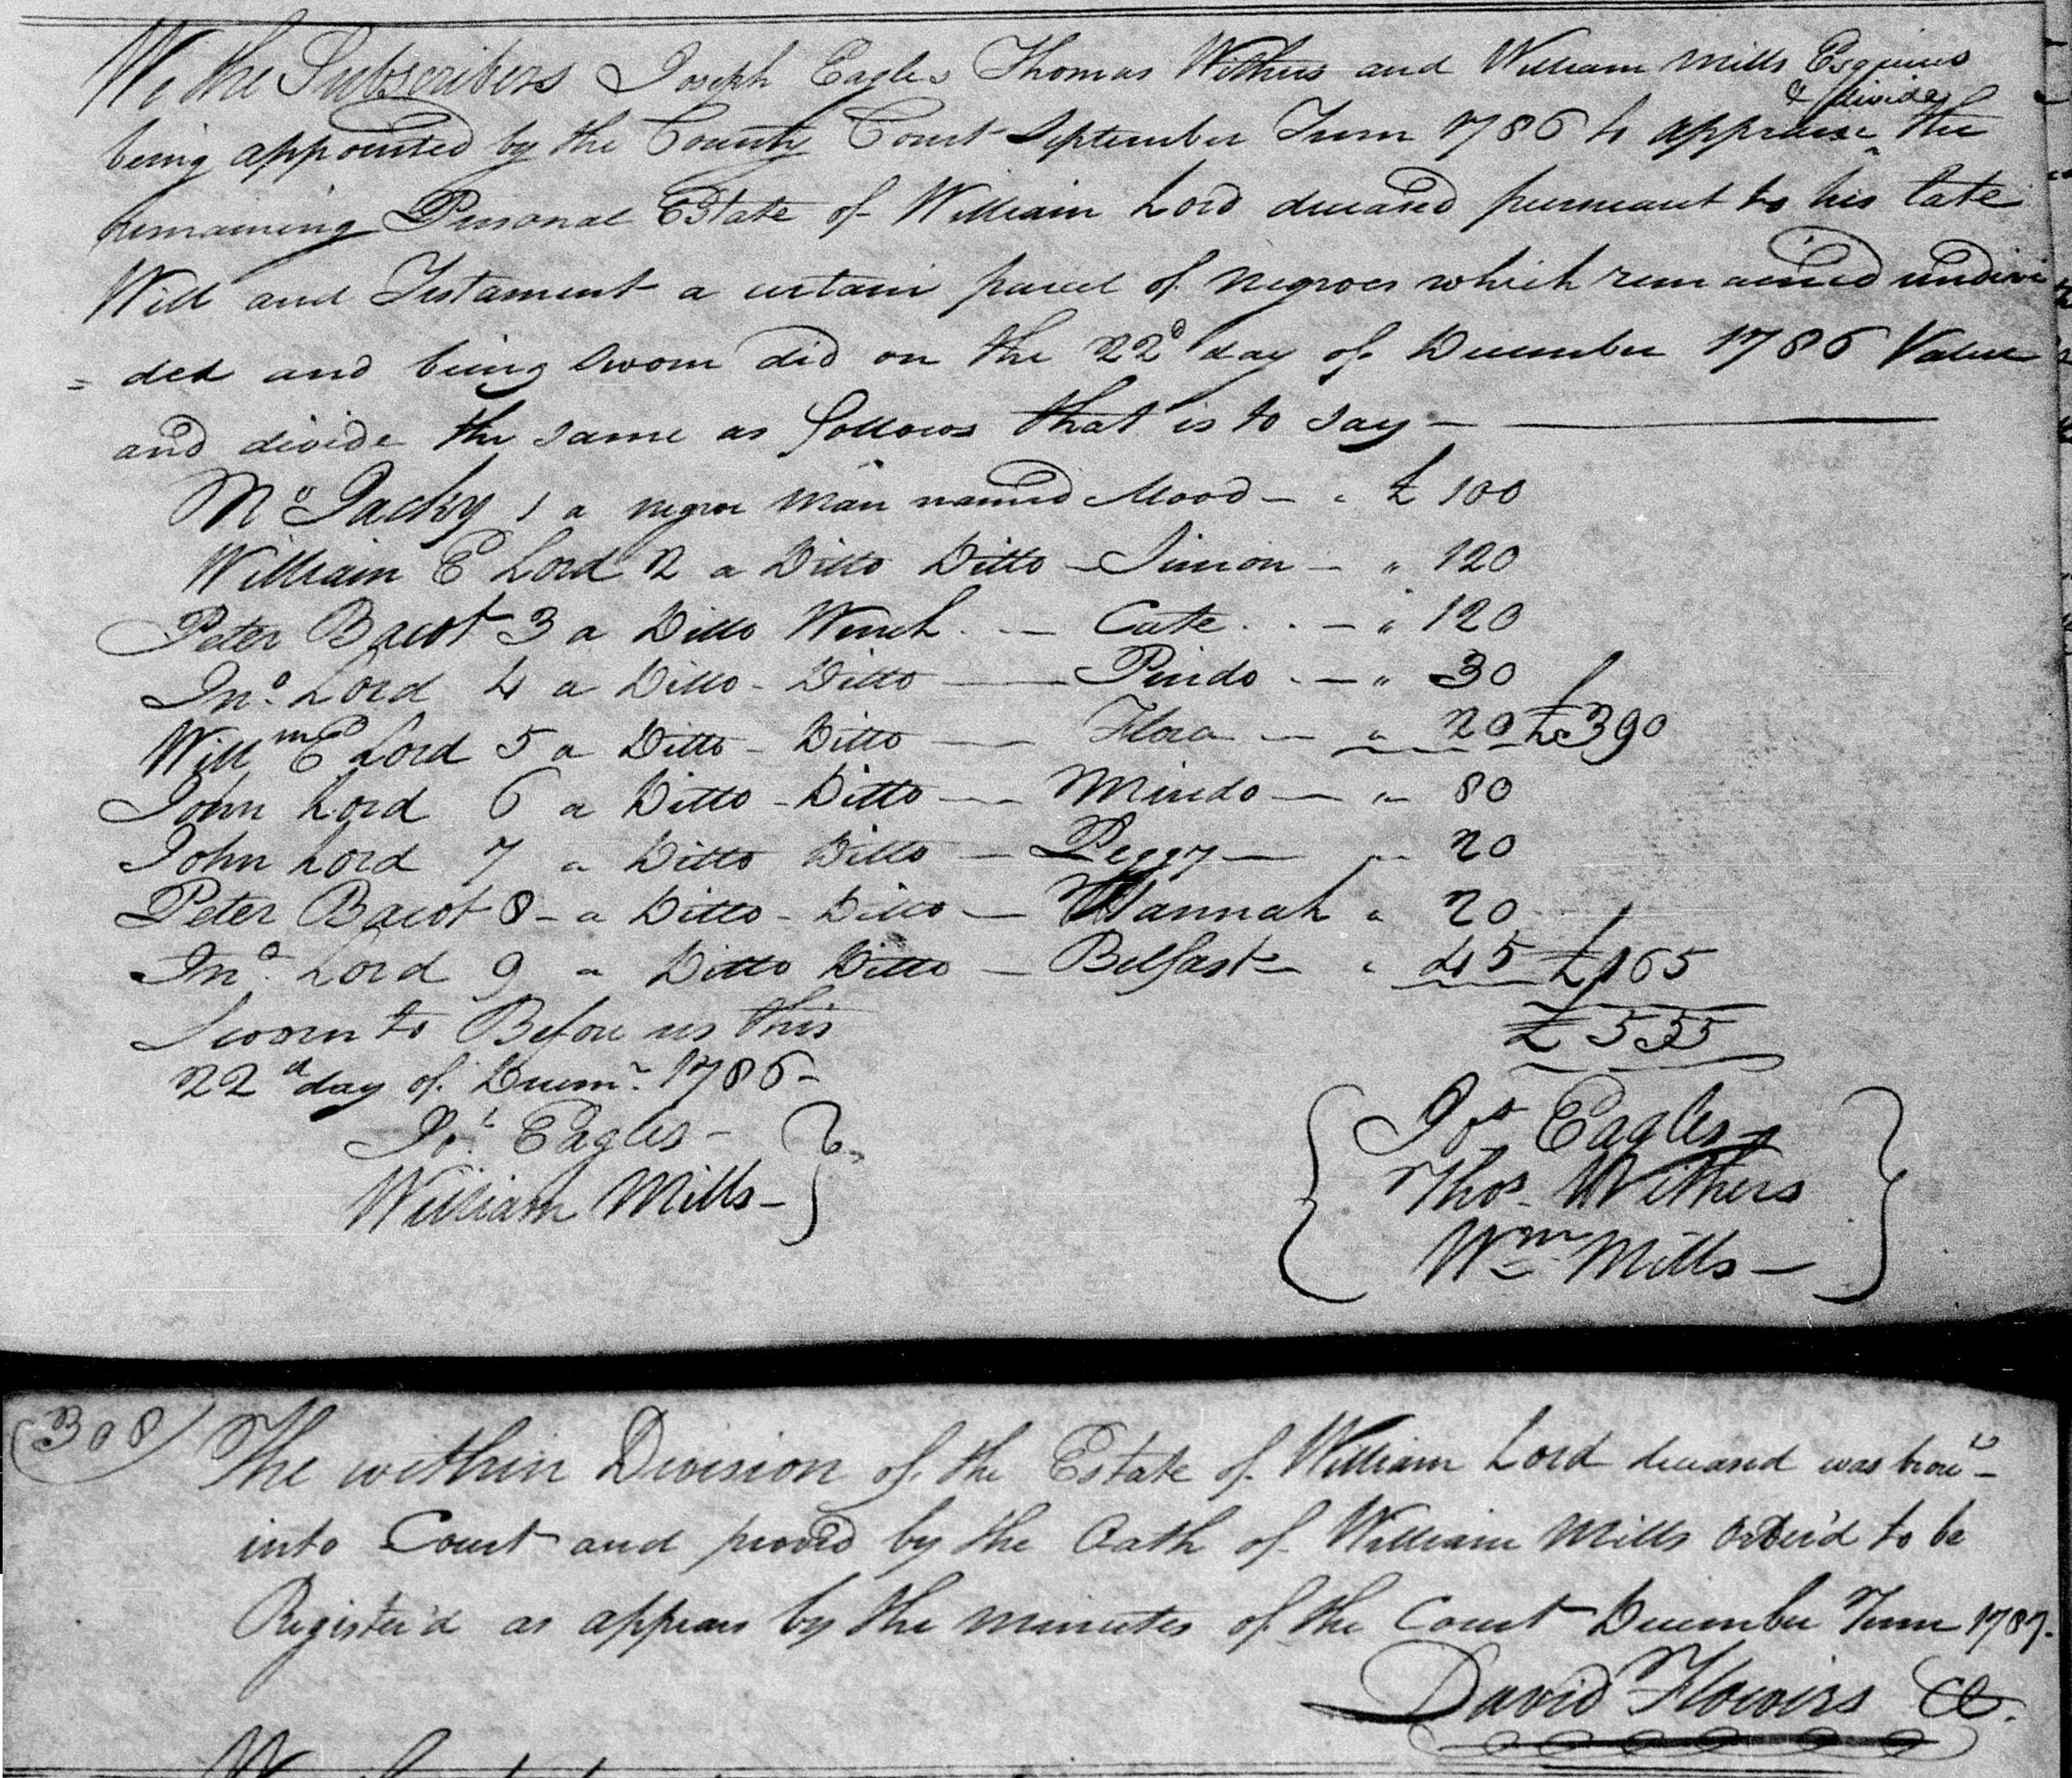 We the Subscribers Joseph Eagles Thomas Withers and William Mills Esquires
being appointed by the County Court September Term 1786 to appraise & divide the
remaining Personal Estate of William Lord deceased pursuant to his late
Will and Testament a certain parcel of negroes which remained undivi
= ded and being sworn did on the 22d day of December 1786 Value
and divide the same as follows that is to say —
Mrs Jacky 1 a negroe man named Mood — " £ 100
William E Lord 2 a Ditto Ditto — Simon — " 120
Peter Bacot 3 a Ditto Wench — Cate — " 120
Jno. Lord 4 a Ditto - Ditto — Pindo — " 30
Willm E Lord 5 a Ditto - Ditto — Flora — " 20 £390
John Lord 6 a Ditto - Ditto — Mindo — " 80
John Lord 7 a Ditto Ditto — Peggy — " 20
Peter Bacot 8 - a Ditto - Ditto — Hannah " 20
Jno. Lord 9 a Ditto Ditto — Belfast — " 45 £165
£ 555
Sworn to Before us this
22d day of Decemr. 1786 -
Jos. Eagles -
William Mills -
Jos Eagles
Thos. Withers
Wm Mills —
(308)
The within Division of the Estate of William Lord deceased was brout
into Court and proved by the Oath of William Mills order'd to be
Register'd as appears by the minutes of the Court December Term 1787.
David Flowers Cl.